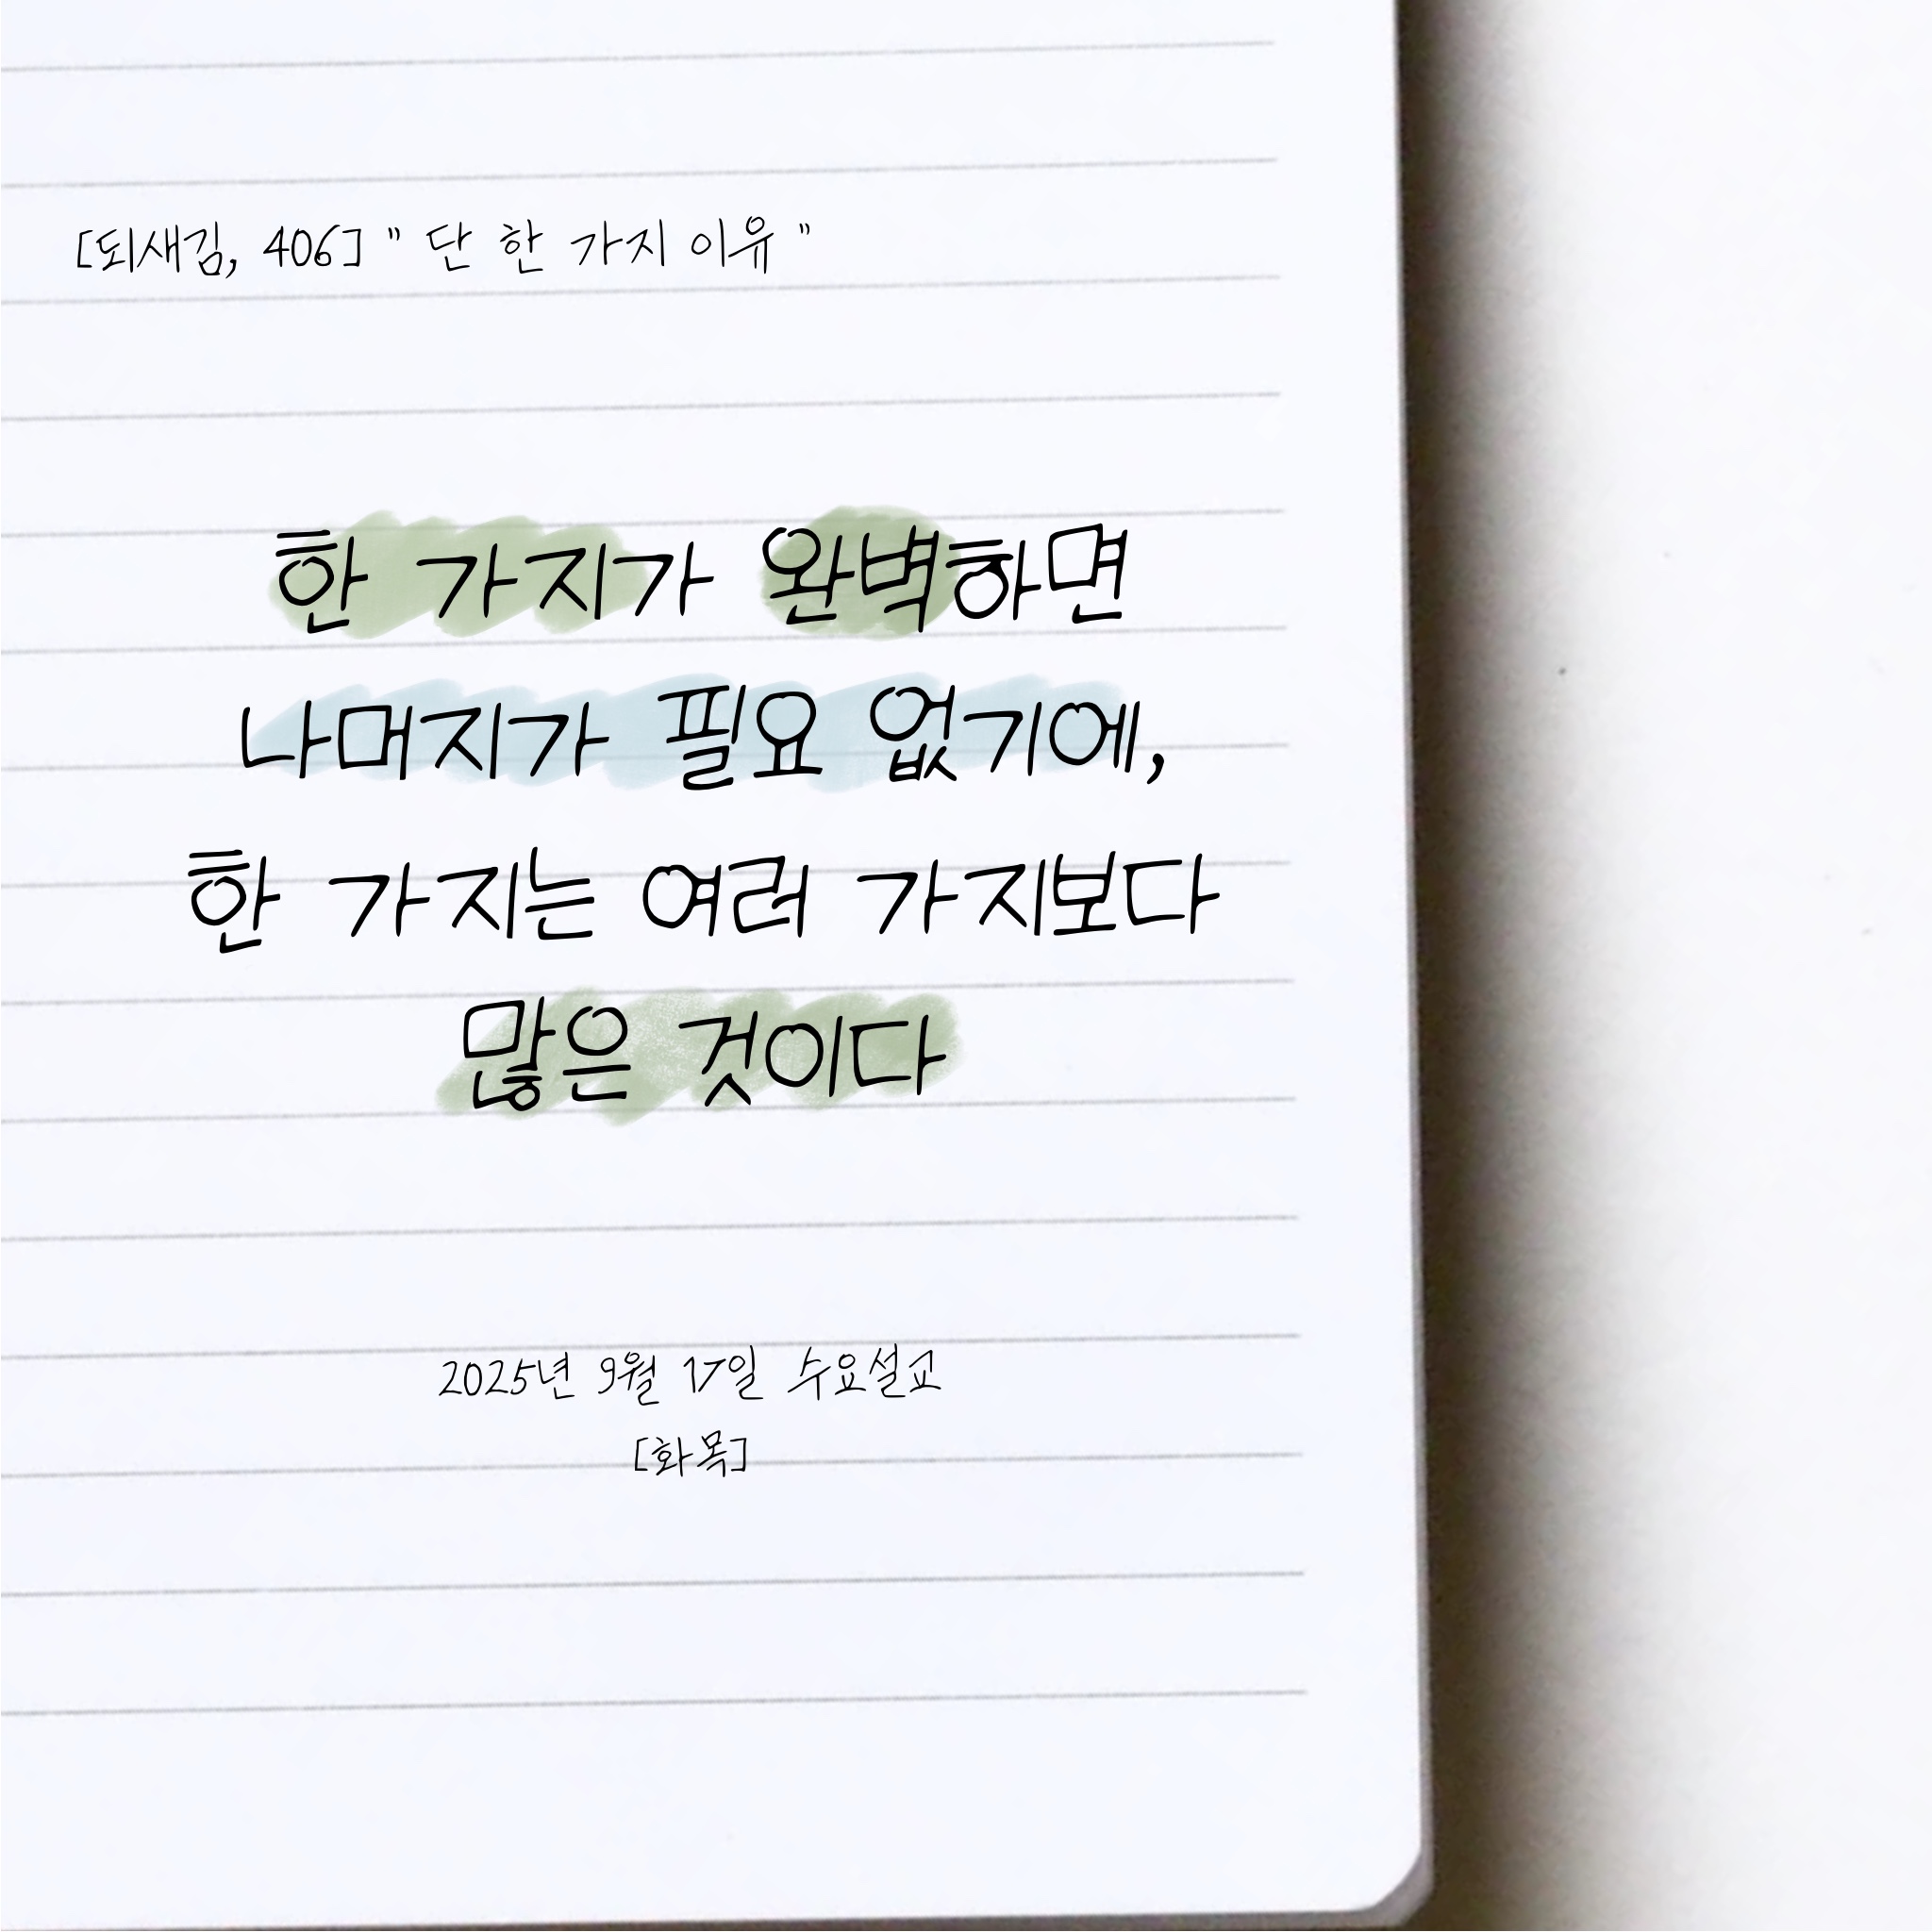 [되새김, 406] " 단 한 가지 이유 "
한 가지가 완벽하면
나머지가 필요 없기에,
한 가지는 여러 가지보다
많은 것이다
2025년 9월 17일 수요설교
[화목]